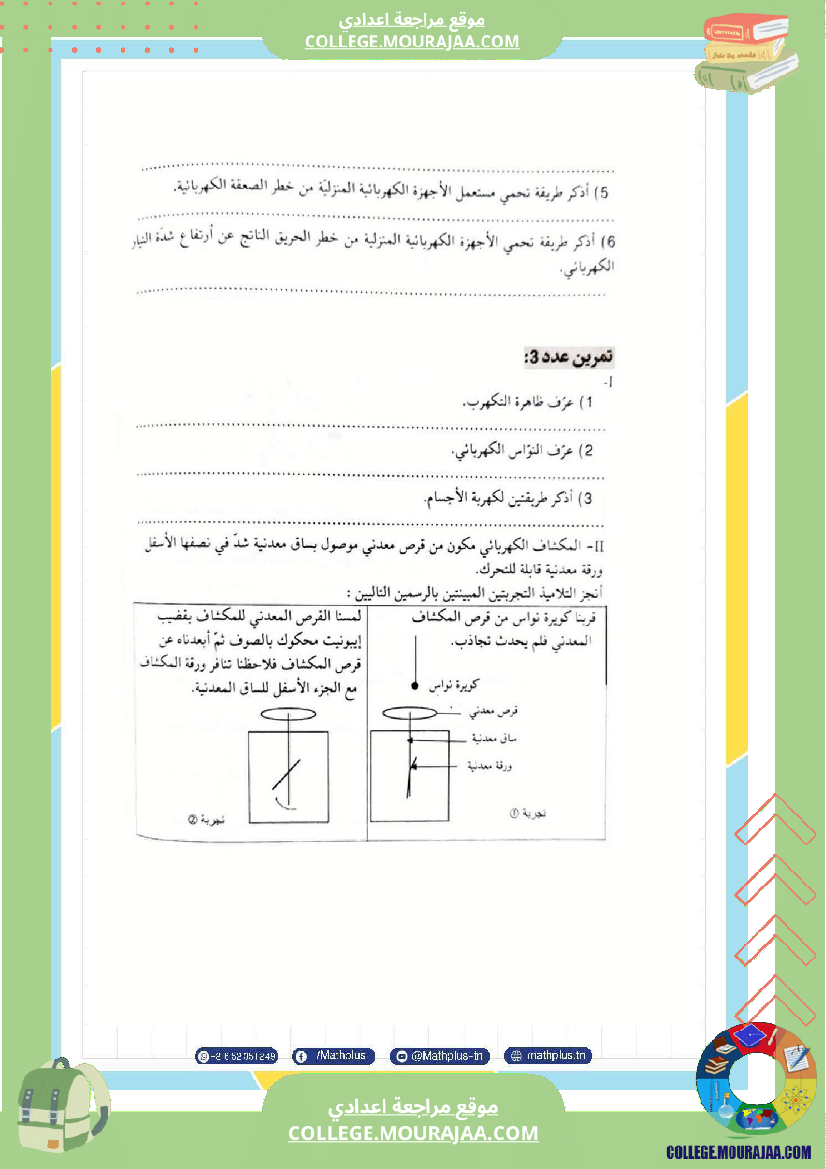 موقع مراجعة اعدادي
COLLEGE.MOURAJAA.COM
5) أذكر طريقة تحمي مستعمل الأجهزة الكهربائية المنزليّة من خطر الصعقة الكهربائية.
6) أذكر طريقة تحمي الأجهزة الكهربائية المنزلية من خطر الحريق الناتج عن أرتفاع شدّة التيار
الكهربائي.
تمرين عدد 3:
I-
1) عرّف ظاهرة التكهرب.
2) عرّف النوّاس الكهربائي.
3) أذكر طريقتين لكهربة الأجسام.
II- المكشاف الكهربائي مكون من قرص معدني موصول بساق معدنية شدّ في نصفها الأسفل
ورقة معدنية قابلة للتحرك.
أنجز التلاميذ التجربتين المبينتين بالرسمين التاليين :
قربنا كويرة نواس من قرص المكشاف
المعدني فلم يحدث تجاذب.
كويرة نواس
قرص معدني
ساق معدنية
ورقة معدنية
تجربة ①
لمسنا القرص المعدني للمكشاف بقضيب
إيبونيت محكوك بالصوف ثمّ أبعدناه عن
قرص المكشاف فلاحظنا تنافر ورقة المكشاف
مع الجزء الأسفل للساق المعدنية.
تجربة ②
/Mathplus
@Mathplus-tn
mathplus.tn
موقع مراجعة اعدادي
COLLEGE.MOURAJAA.COM
COLLEGE.MOURAJAA.COM